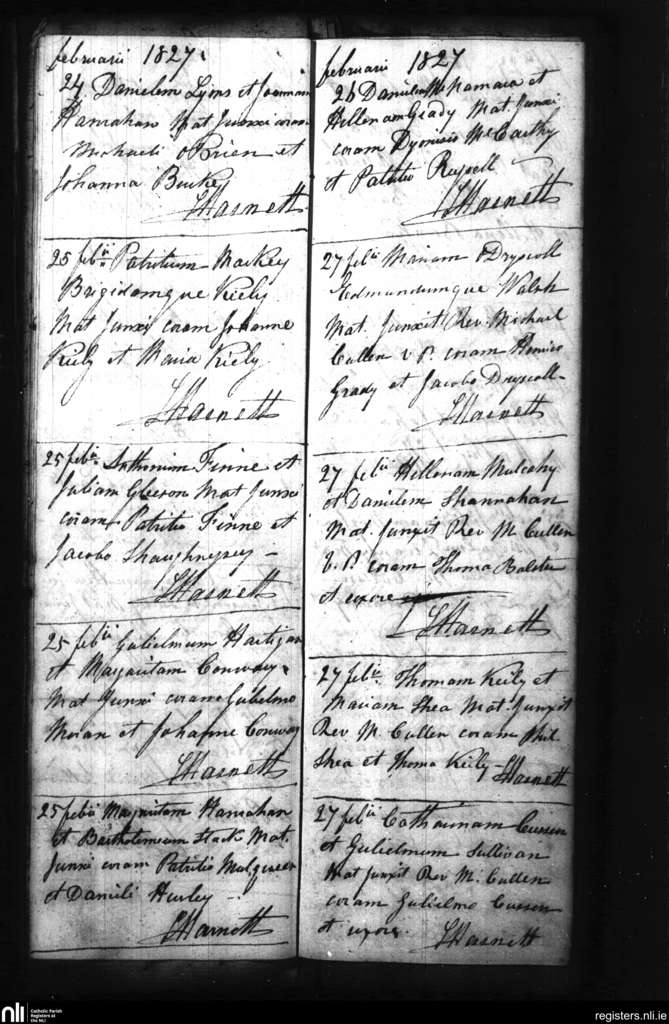 februarii 1827.
24 Danielem Lyons et Joannam
Hanrahan Mat Junxi coram
Michaeli OBrien et
Johanna Burke
Harnett
25 feb Patritium Mackey
Brigidamque Kiely
Mat Junxi coram Johanne
Kiely et Maria Kiely
Harnett
25 feb Finne et
Juliam Gleeson Mat Junxi
coram Patritio Finne et
Jacobo Shaughnessy
Harnett
25 feb Gulielmum Hartigan
et Margaritam Conway
Mat Junxi coram Gulielmo
Moran et Johanne Conway
Harnett
25 feb Margaritam Hanrahan
et Bartholomeum Stack Mat.
Junxi coram Patritio
et Danieli Hurley
Harnett
februarii 1827
26 Danielem McNamara et
Hellenam Grady Mat. Junxi
coram Dyonisio McCarthy
et Patritio Russell
Harnett
27 feb Mariam ODryscoll
Edmundumque Walsh
Mat. Junxit Rev. Michael
Cullen V P. coram
Grady et Jacobo Dryscoll
Harnett
27 feb Hellenam Mulcahy
et Danielem Shannahan
Mat. Junxit Rev M. Cullen
V. P coram Thoma
et uxore
Harnett
27 feb Thomam Keily et
Mariam Shea Mat. Junxit
Rev M. Cullen coram Phil.
Shea et Thoma Keily Harnett
27 feb Catharinam Cussen
et Gulielmum Sullivan
Mat Junxit Rev M. Cullen
coram Gulielmo Cussen
et uxore. Harnett
nli Catholic Parish
Registers at
the NLI
registers.nli.ie